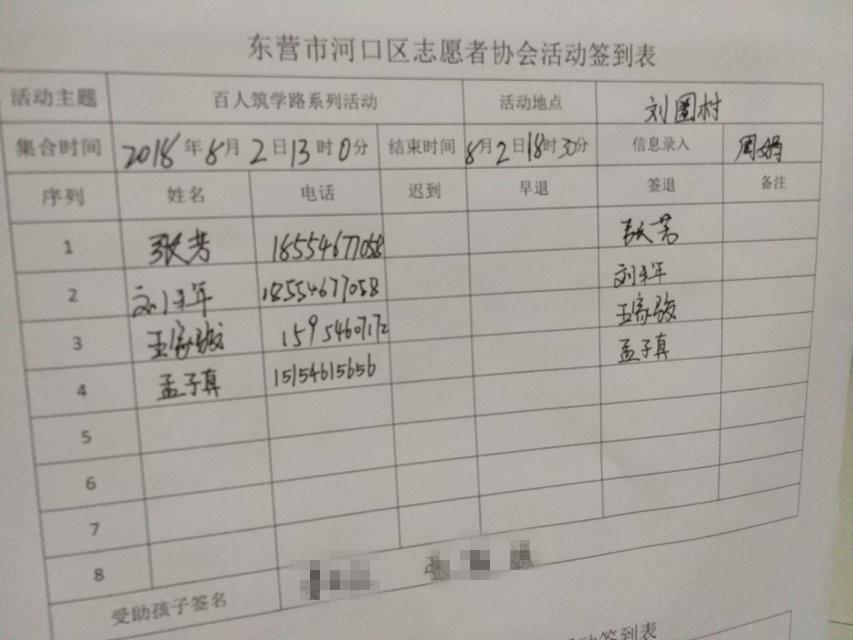 东营市河口区志愿者协会活动签到表
活动主题 百人筑学路系列活动 活动地点 刘圈村
集合时间 2018年8月2日13时0分 结束时间 8月2日18时30分 信息录入 周娟
序列 姓名 电话 迟到 早退 签退 备注
1 张芳 18554677058 张芳
2 刘 年 18554677058 刘 年
3 王家 15954607172 王家
4 孟子真 15154615656 孟子真
5
6
7
8
受助孩子签名 张
活动签到表